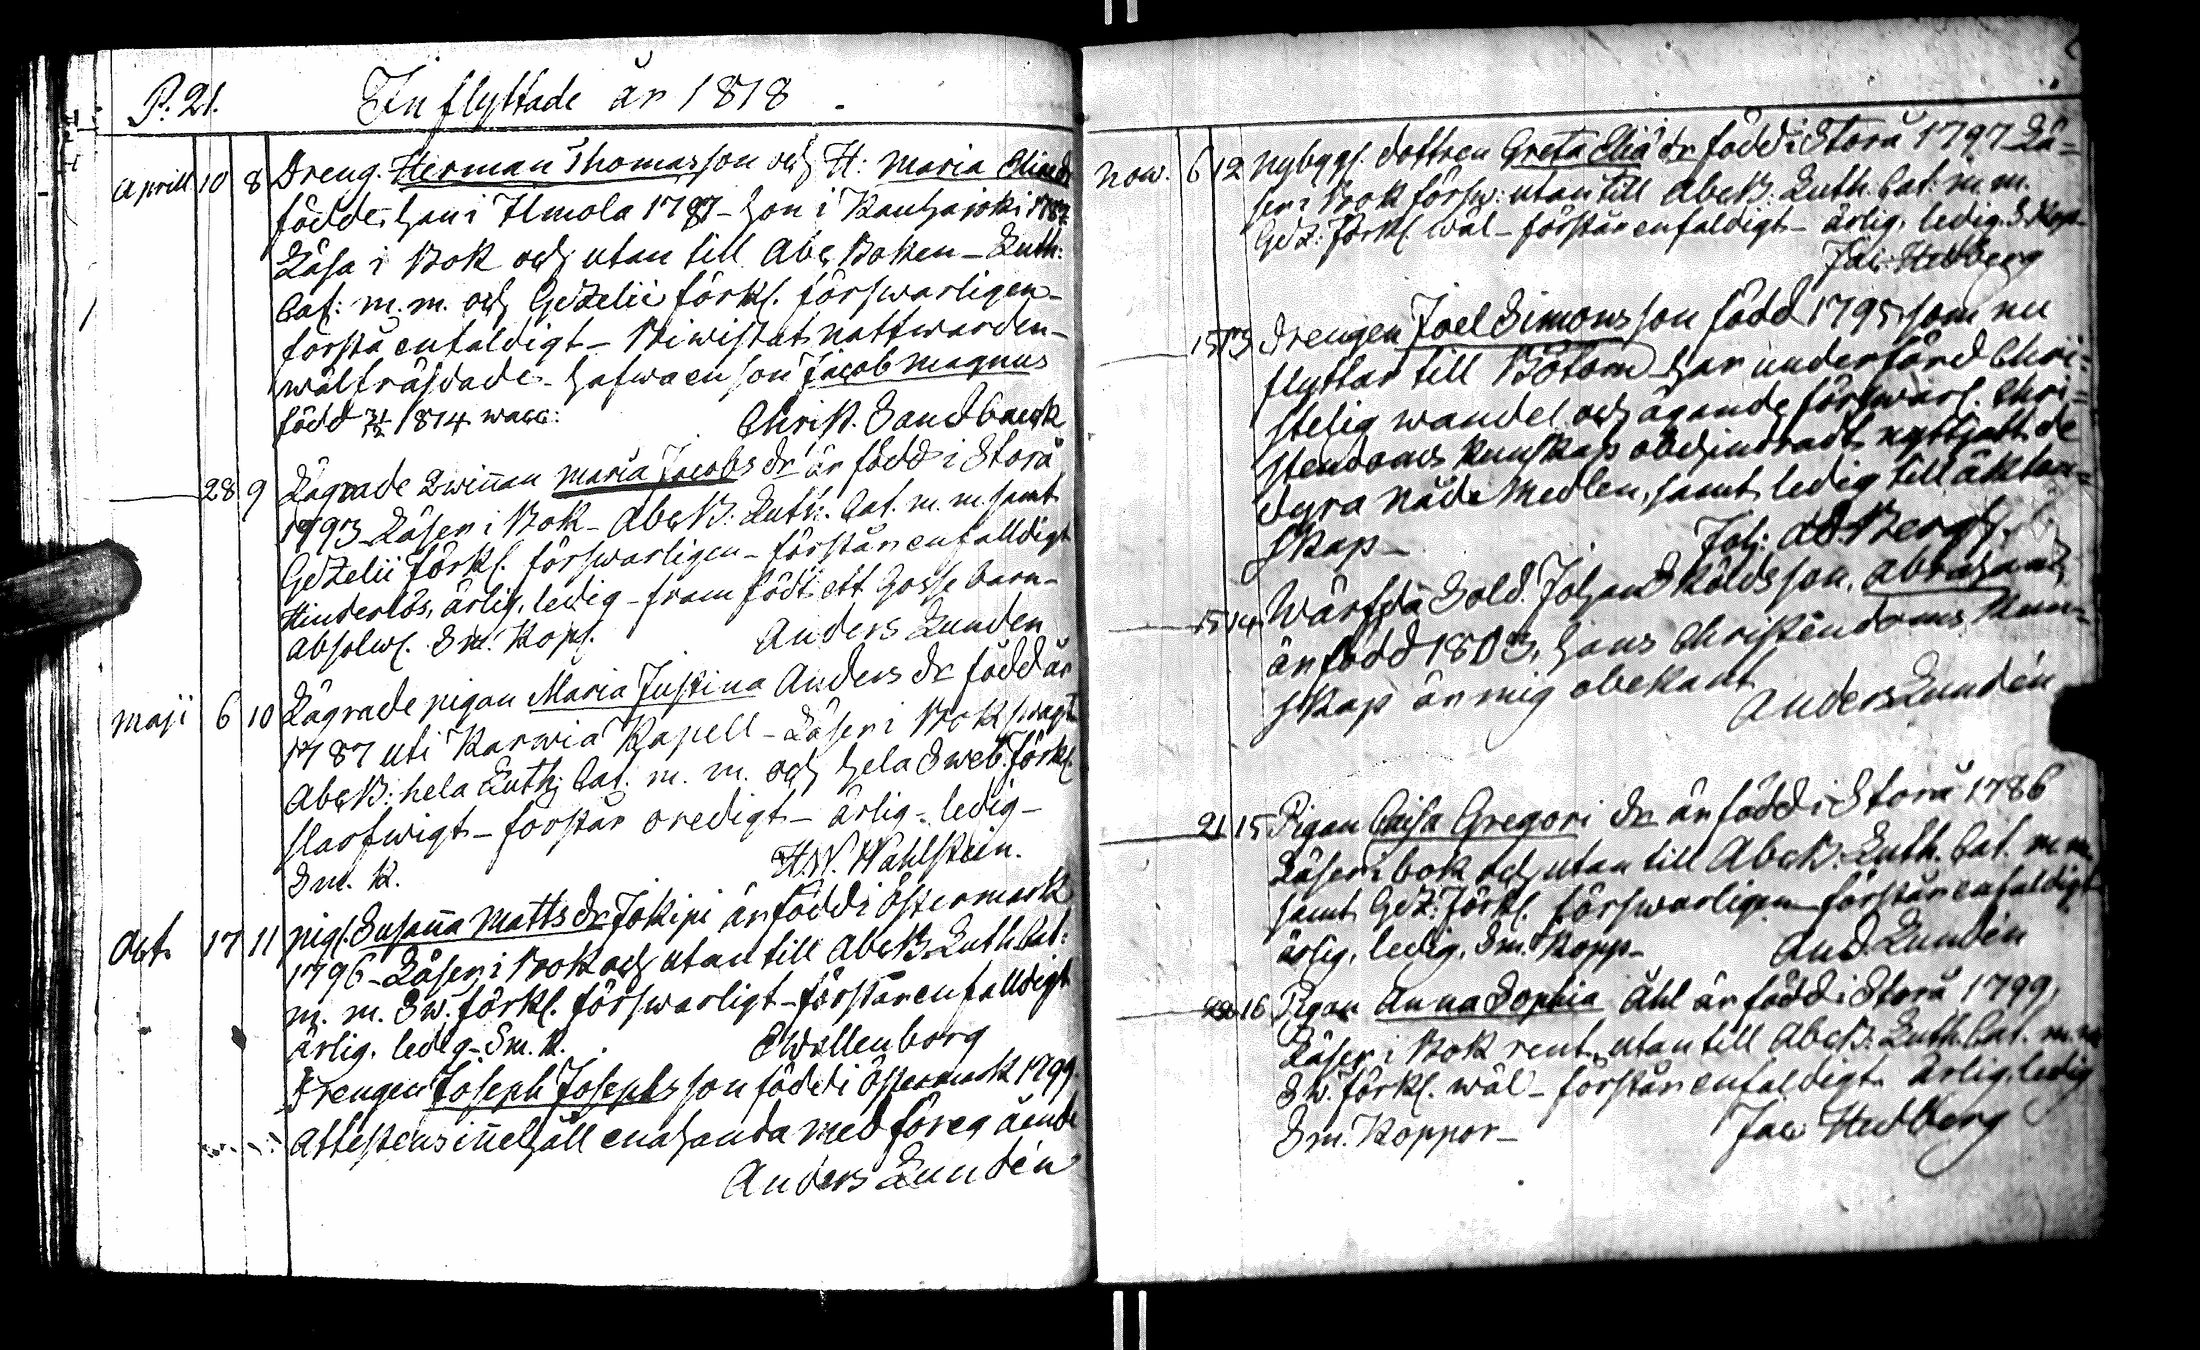 P. 21. Inflyttade år 1818
Aprill 10 8 Dreng. Herman Thomasson och H: Maria Eliæ dr
födde, han i Ilmola 1787 - hon i Kauhajoki 1787
Läsa i Bok och utan till Abc Boken - Luth:
Cat: m. m. och Gezelii förkl. förswarligen -
förstå enfaldigt - Biwistat nattwarden -
wälfräjdade - hafwa en son Jacob Magnus
född 1814 wacc: Christ. Sandback
28 9 Lägrade Qwinnan Maria Jacobs dr är född i Storå
1793 Läser i Bok - AbcB: Luth. Cat. m. m. samt
Gezelii förkl. förswarligen - förstår enfalldigt
Hinderlös, ärlig, ledig - framfödt ett Gosse barn -
absolw. Sm. Kopp. Anders Lunden
Maji 6 10 Lägrade pigan Maria Justina Anders dr född är
1787 uti Karwia Kapell - Läser i Bok swagt
AbcB: hela Luth. Cat. m. m. och hela Sweb. förkl.
slarfwigt - förstår oredigt - ärlig - ledig -
Sm. K. H.W. Wahlstein.
Oct. 17 11 pig. Susanna Matts dr Jokipi är född i Östermark
1796 - Läser i Bok och utan till AbcB. Luth Cat:
m. m. Sw. förkl. förswarligt - förstår enfalldigt
ärlig. ledig - Sm. K. E Wallenborg
Drengen Joseph Josephsson född i Östermark 1799
Attestens innehåll enahanda med föregående
Anders Lundén
Now. 6 12 Nybygg. dottren Greta Eliæ dr född i Storå 1797 Lä=
ser i Bok försw: utan till AbcB. Luth. Cat: m. m.
Gez: förkl. wäl - förstår enfaldigt - ärlig, ledig. S Kop
Jac: Hedberg
15 13 Drengen Joel Simonsson född 1795, som nu
flyttar till Bötom har under förd Chri=
stelig wandel och ägande förswarl. Chri=
stendoms Kunskap obehindradt nyttjatt de
dyra Nåde Medlen, samt ledig till äkten=
skap - Joh:
15 14 Wärfda Sold. Johan Skölds son, Abraham,
är född 1803, hans Christendoms Kun=
skap är mig obekant Anders Lundén
21 15 Pigan Caisa Gregori dr är född i Storå 1786
Läser i bok och utan till AbcB. Luth. Cat. m m.
samt Gez: förkl. förswarligen förstår enfaldigt
ärlig, ledig. Sm. Kopp - And. Lundén
16 Pigan Anna Sophia Åhl är född i Storå 1799,
Läser i Bok rent, utan till AbcB. Luth Cat. m. m
Sw. förkl. wäl - förstår enfaldigt. ärlig, ledig
Sm. Koppor - Jac Hedberg